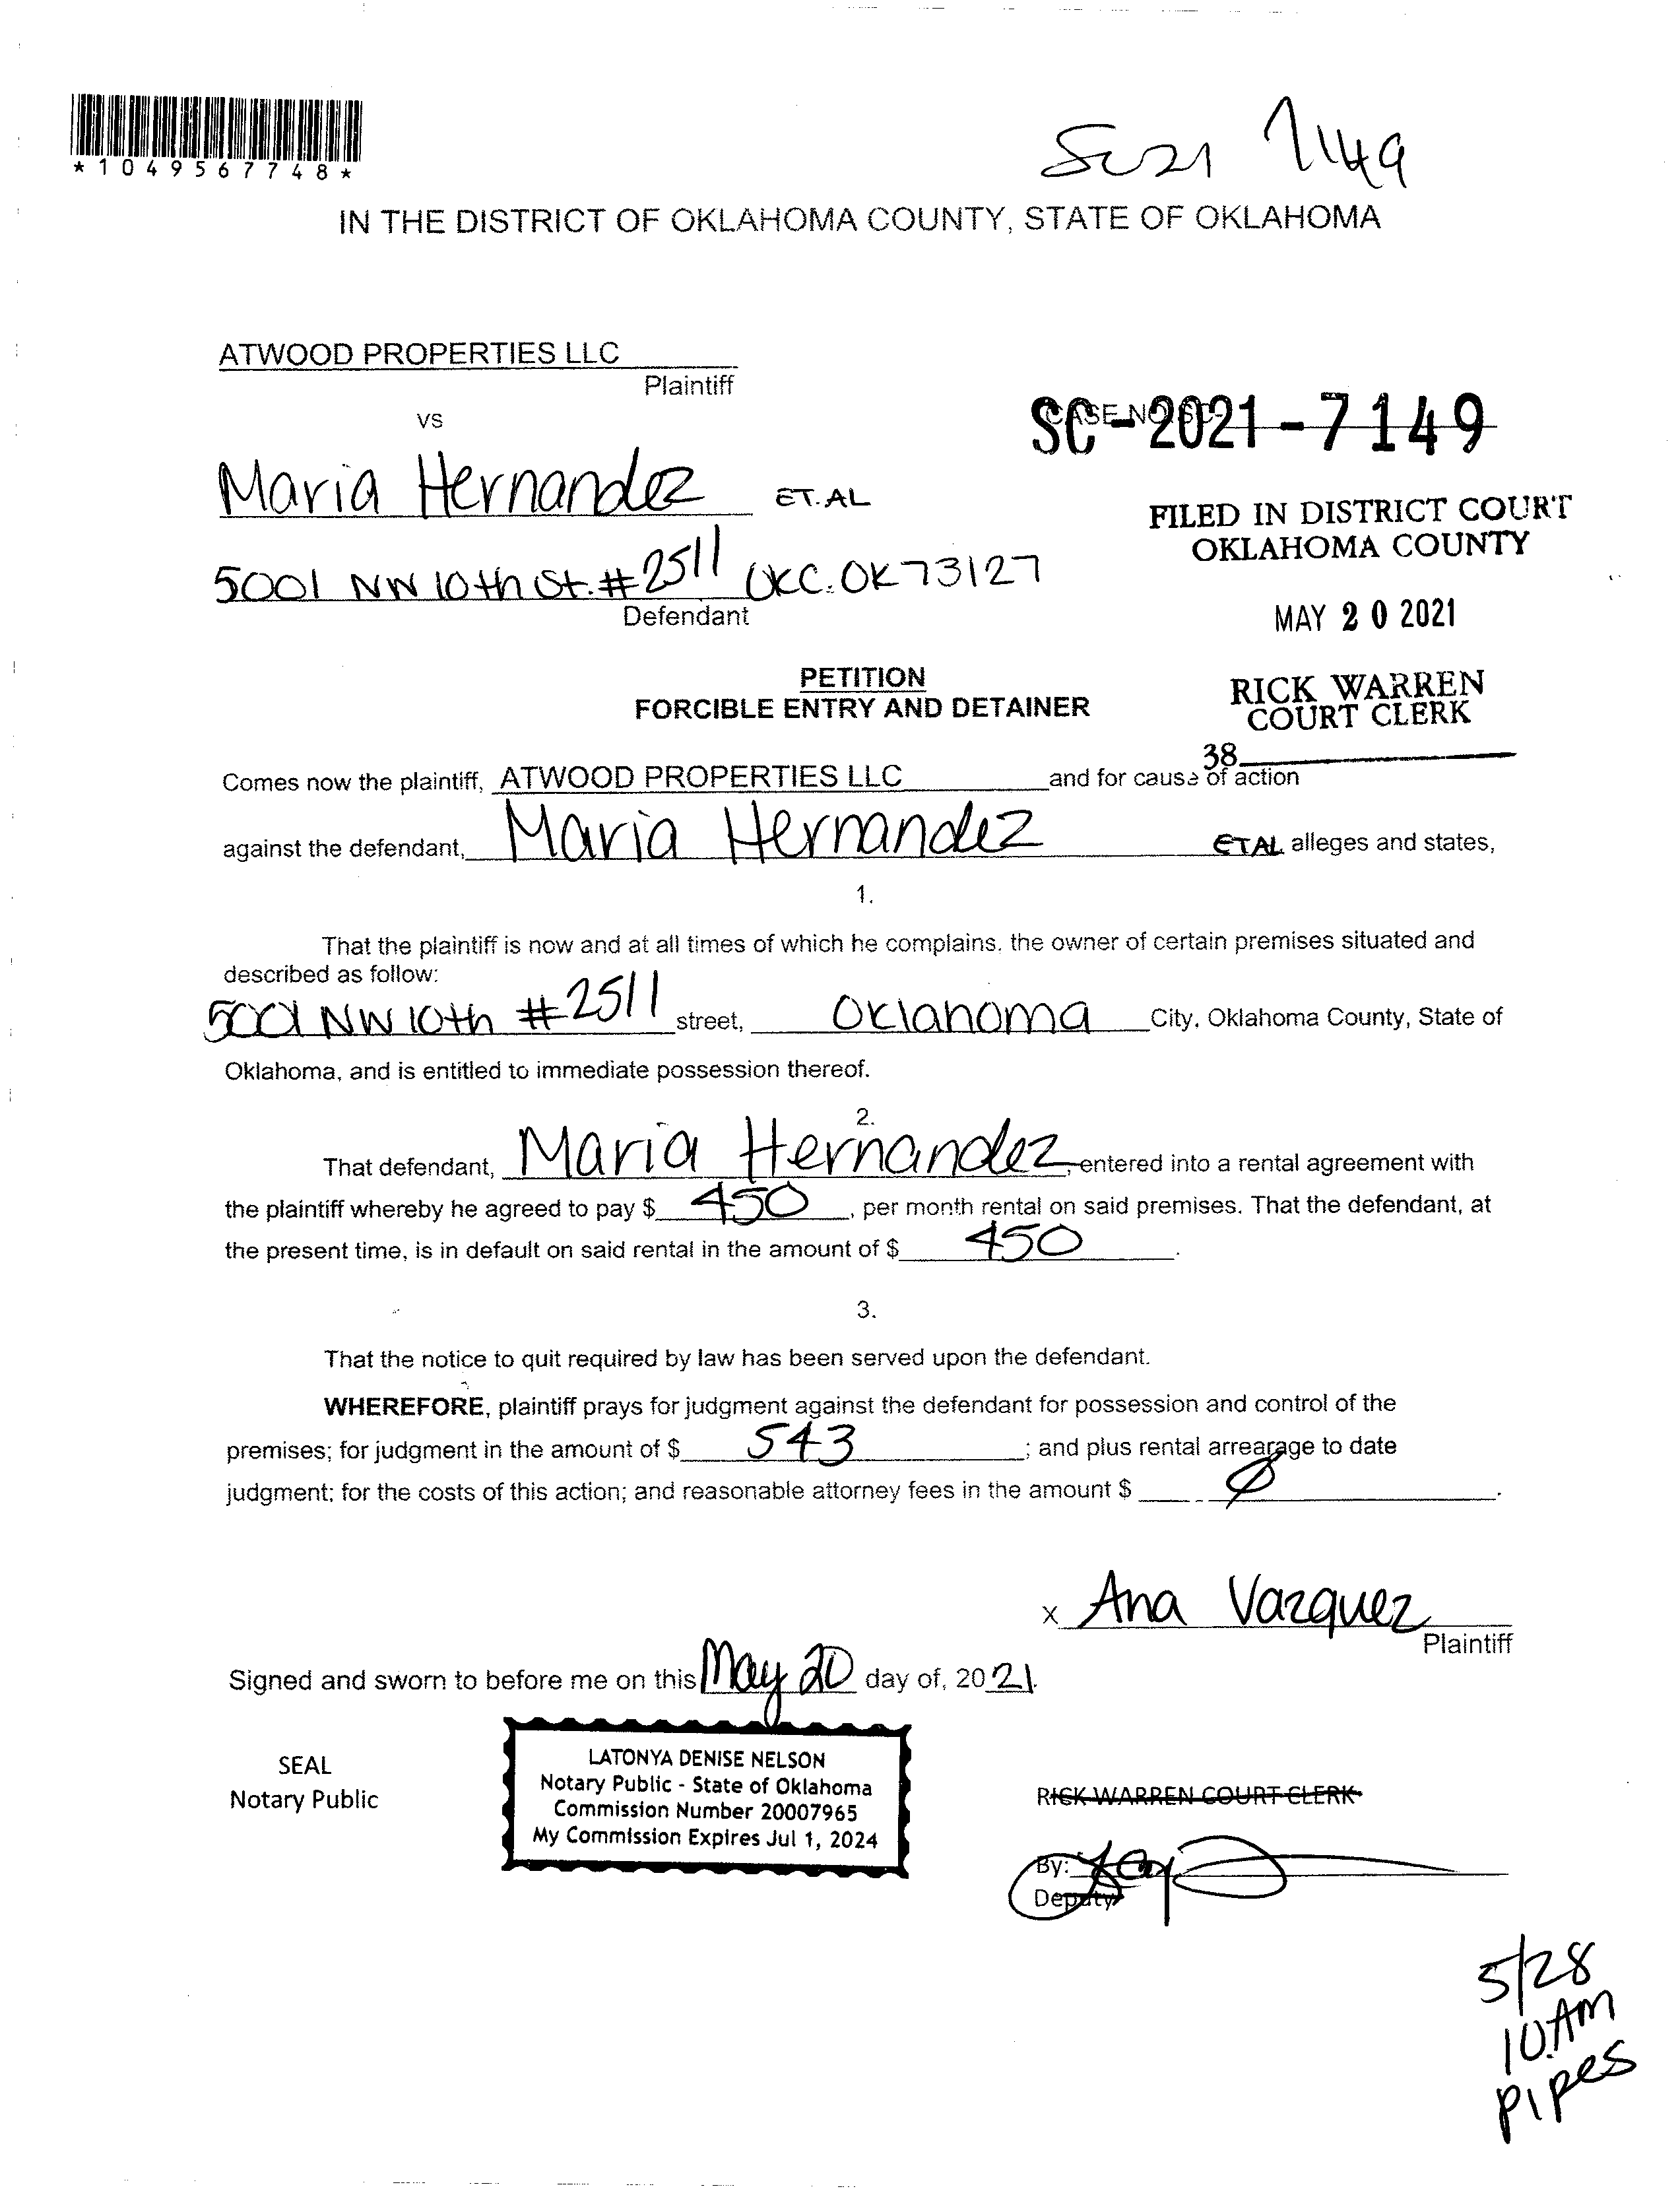 *1049567748*
SC21 7149
IN THE DISTRICT OF OKLAHOMA COUNTY, STATE OF OKLAHOMA
ATWOOD PROPERTIES LLC
Plaintiff
vs
CASE NO. SC-
SC-2021-7149
Maria Hernandez ET.AL
FILED IN DISTRICT COURT
OKLAHOMA COUNTY
5001 NW 10th St. #2511 OKC. OK 73127
Defendant
MAY 20 2021
PETITION
FORCIBLE ENTRY AND DETAINER
RICK WARREN
COURT CLERK
38
Comes now the plaintiff, ATWOOD PROPERTIES LLC and for cause of action
against the defendant, Maria Hernandez ETAL alleges and states,
1.
That the plaintiff is now and at all times of which he complains, the owner of certain premises situated and
described as follow:
5001 NW 10th #2511 street, Oklahoma City, Oklahoma County, State of
Oklahoma, and is entitled to immediate possession thereof.
2.
That defendant, Maria Hernandez, entered into a rental agreement with
the plaintiff whereby he agreed to pay $ 450, per month rental on said premises. That the defendant, at
the present time, is in default on said rental in the amount of $ 450.
3.
That the notice to quit required by law has been served upon the defendant.
WHEREFORE, plaintiff prays for judgment against the defendant for possession and control of the
premises; for judgment in the amount of $ 543; and plus rental arrearage to date
judgment; for the costs of this action; and reasonable attorney fees in the amount $ Ø.
x Ana Vazquez
Plaintiff
Signed and sworn to before me on this May 20 day of, 2021.
SEAL
Notary Public
LATONYA DENISE NELSON
Notary Public - State of Oklahoma
Commission Number 20007965
My Commission Expires Jul 1, 2024
RICK WARREN COURT CLERK
By:
Deputy
5/28
10AM
Pipes